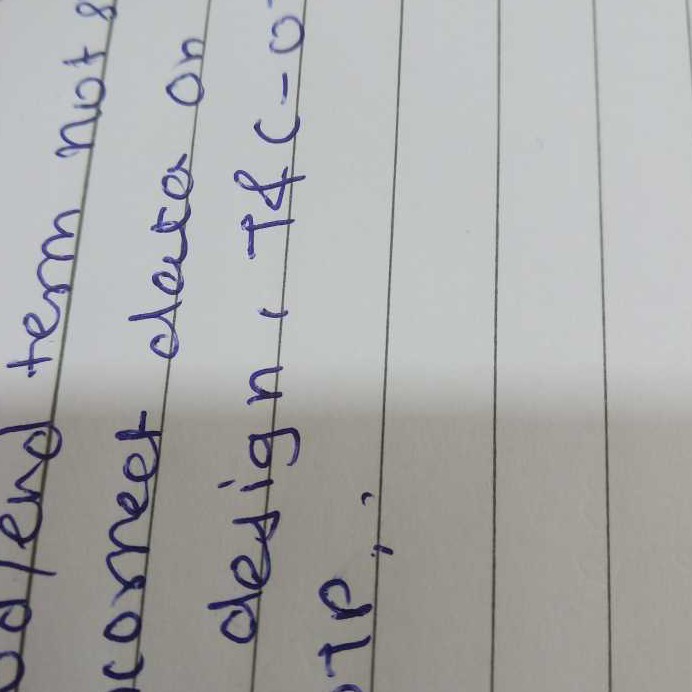 /end term not
correct data on
design, T&C-
TP,